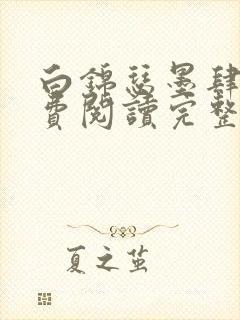 白錦瑟墨肆
費閱讀完整
夏之茧